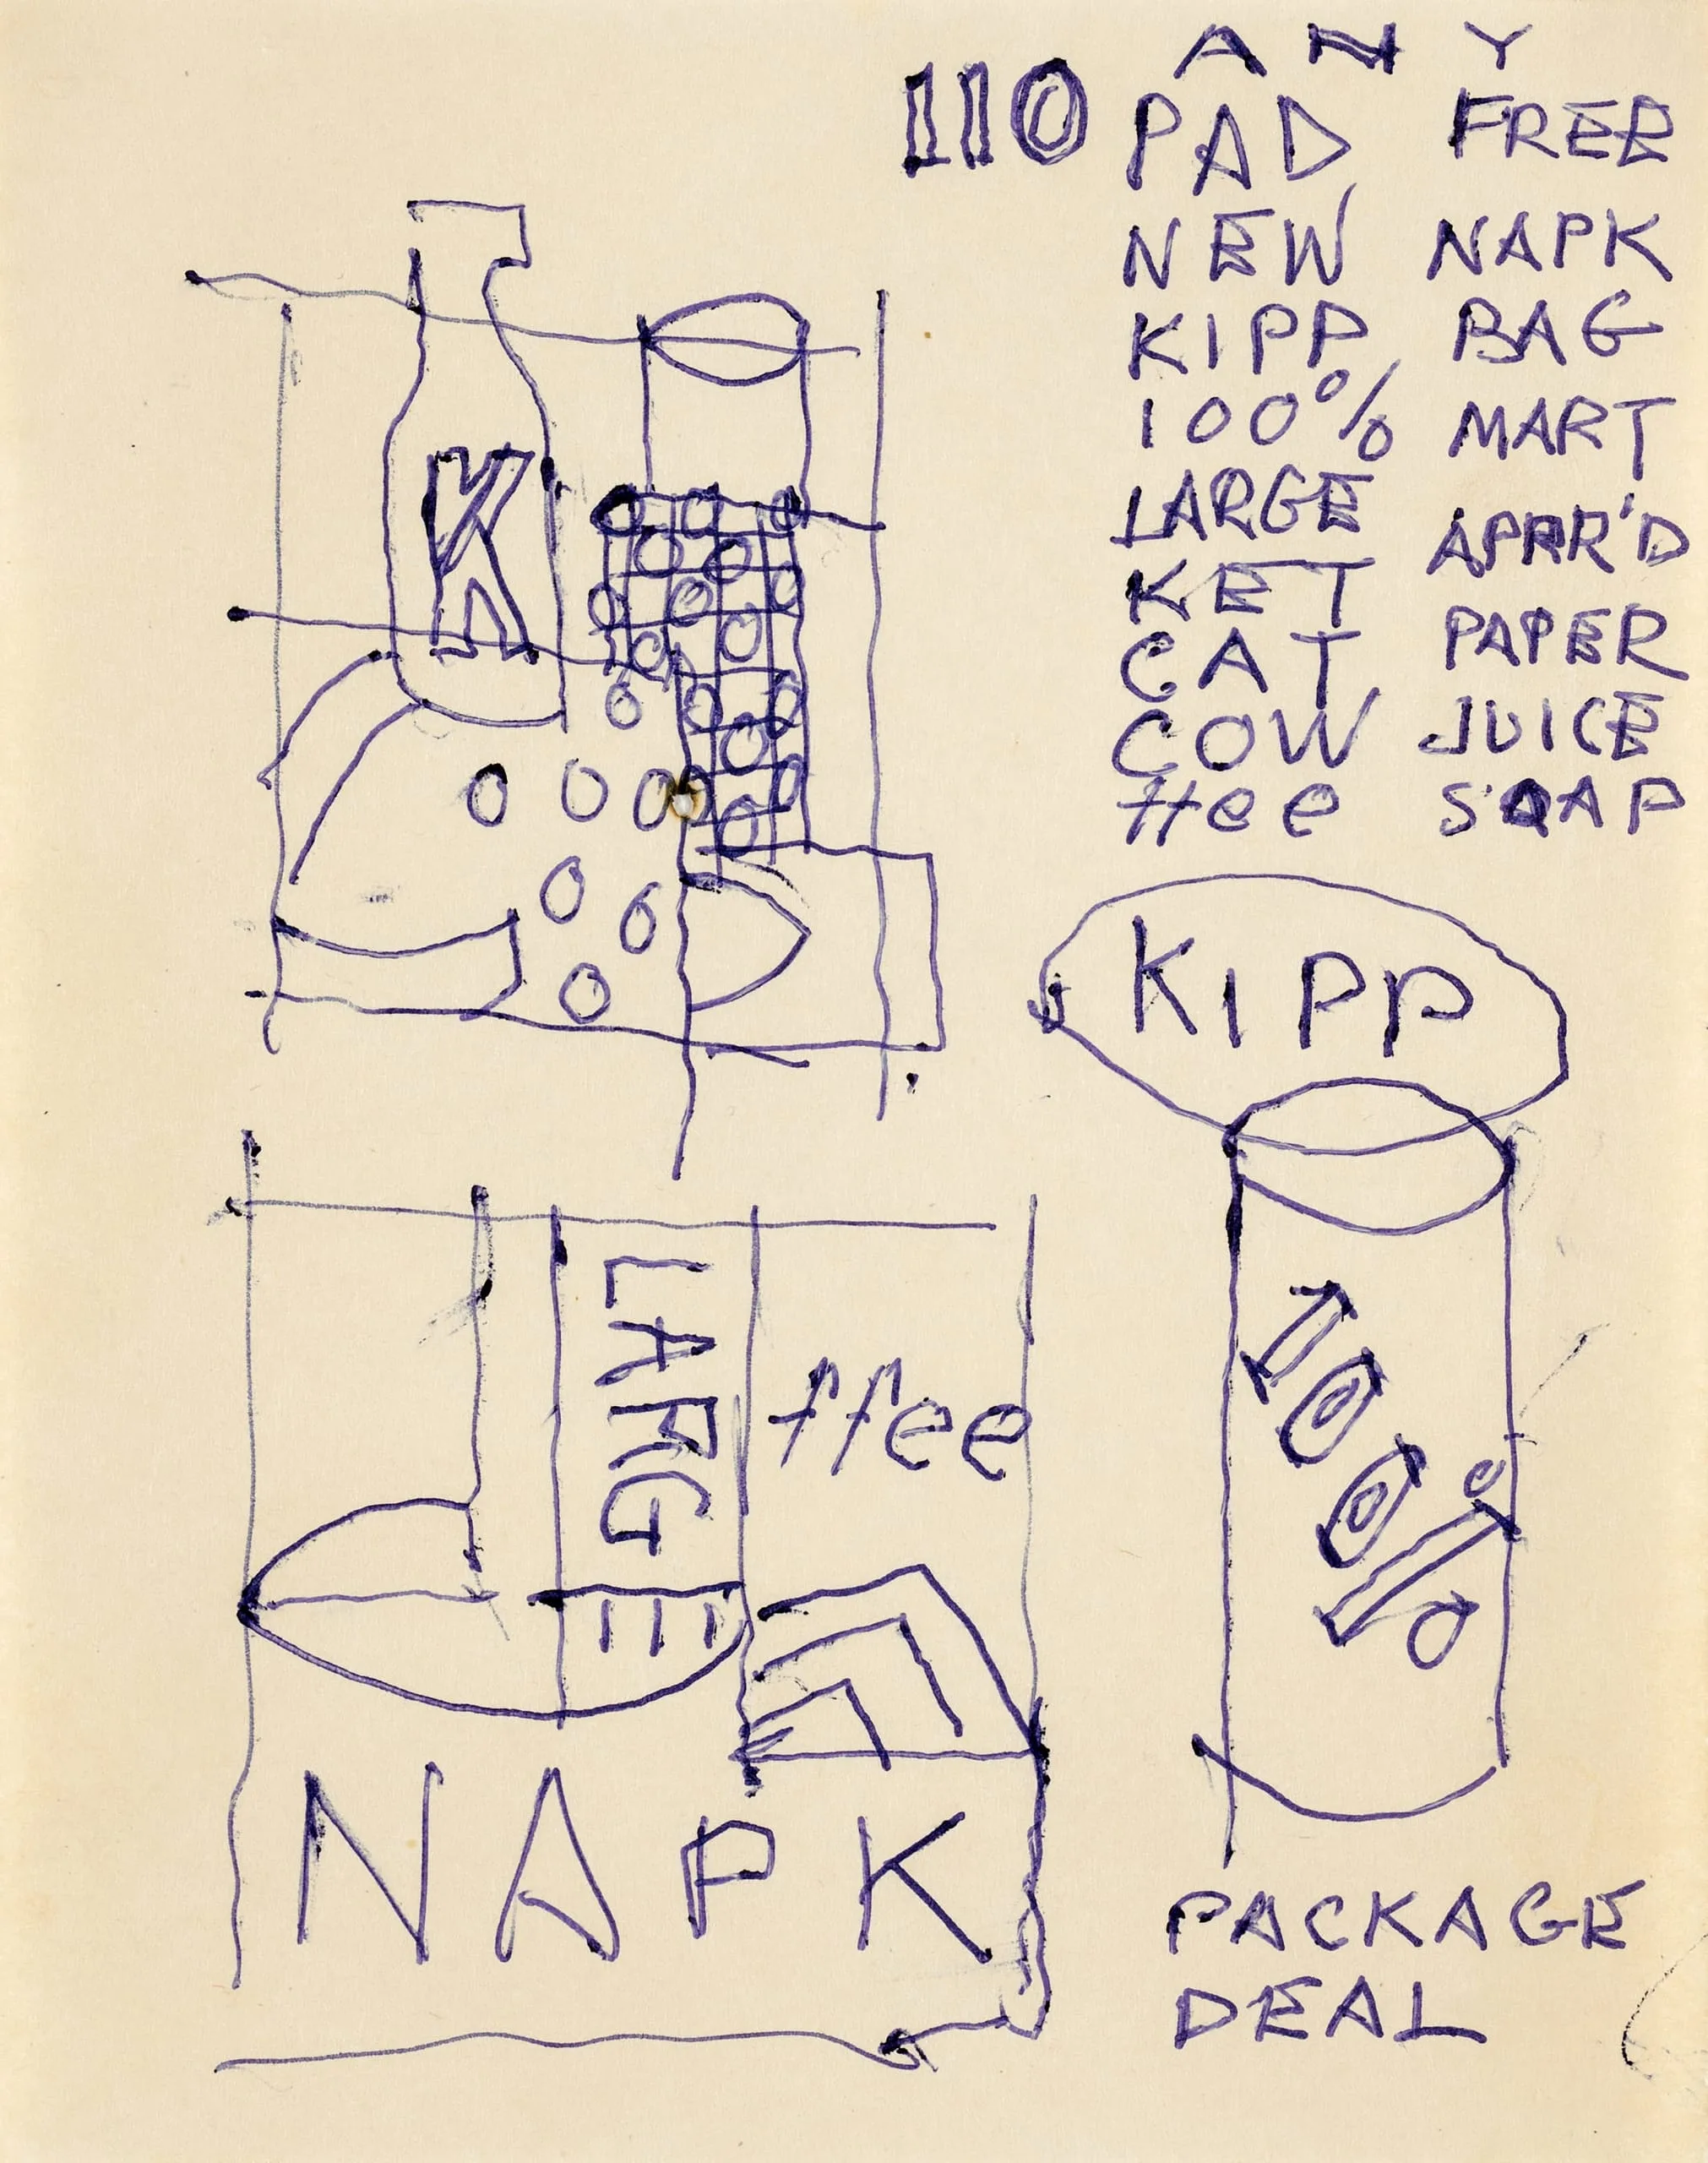 ANY
110 PAD FREE
NEW NAPK
KIPP BAG
100% MART
LARGE APRR'D
KET PAPER
CAT JUICE
COW SOAP
ffee
K
KIPP
LARGE
ffee
100%
NAPK
PACKAGE
DEAL